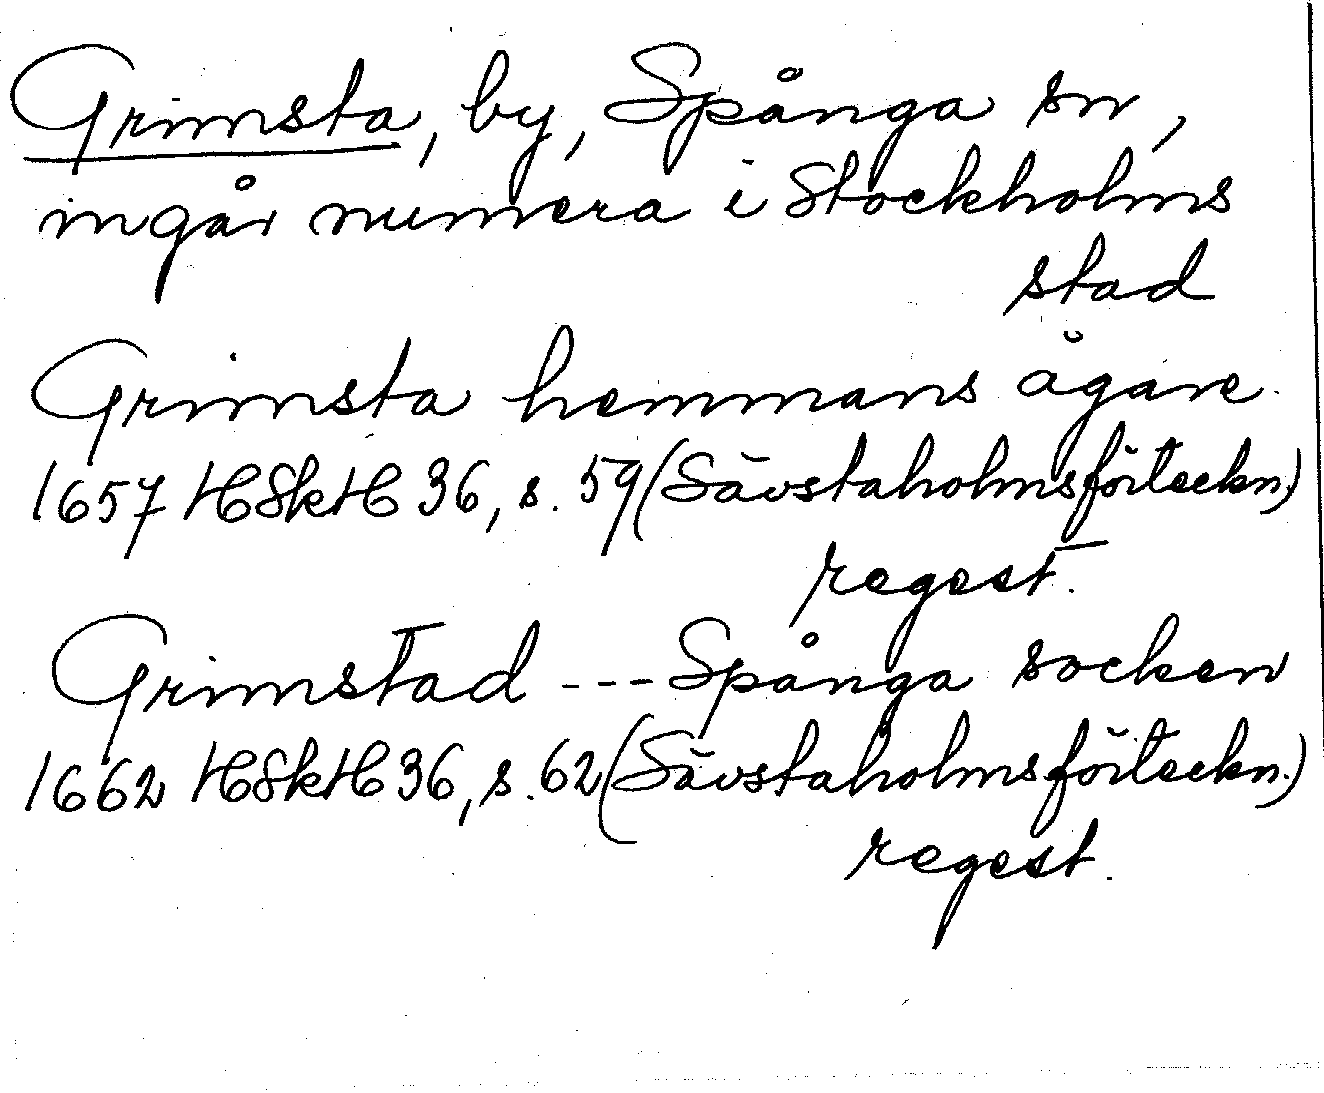 Grimsta, by, Spånga sn,
ingår numera i Stockholms
stad
Grimsta hemmans ägare.
1657 HSkH 36, s. 59 (Sävstaholmsförteckn.)
regest.
Grimstad --- Spånga socken
1662 HSkH 36, s. 62 (Sävstaholmsförteckn.)
regest.